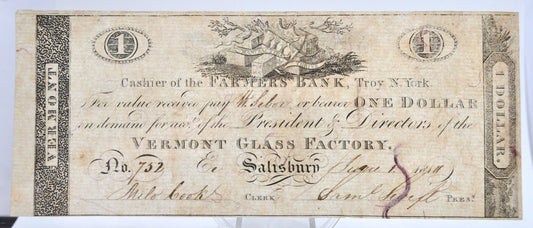 1 1
Cashier of the FARMERS BANK, Troy N. York.
For value received pay or bearer ONE DOLLAR
on demand for acc.t of the President & Directors of the
VERMONT GLASS FACTORY.
No. 752 Salisbury
Milo Cook CLERK Sam.l Swift PRES.t
VERMONT
1 DOLLAR.